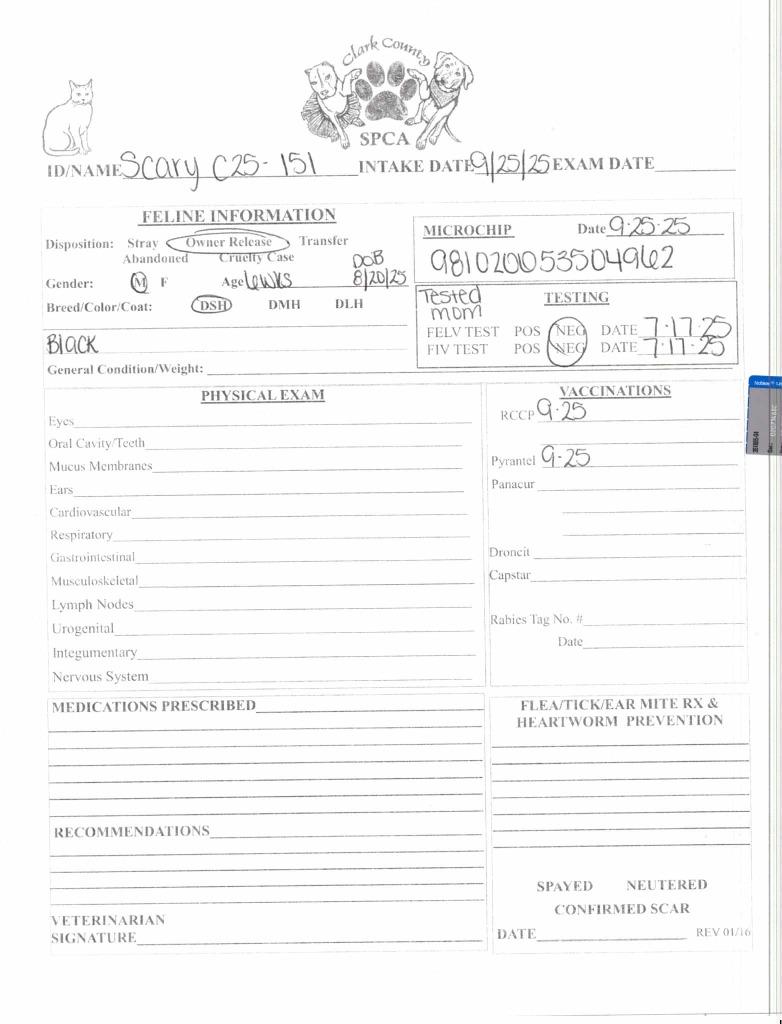 Clark County
SPCA
ID/NAME Scary C25-151 INTAKE DATE 9/25/25 EXAM DATE
FELINE INFORMATION
Disposition: Stray Owner Release Transfer
Abandoned Cruelty Case
DOB
Gender: M F Age 6wks 8/20/25
Breed/Color/Coat: DSH DMH DLH
Black
General Condition/Weight:
MICROCHIP Date 9-25-25
981020053504962
Tested
mom
TESTING
FELV TEST POS NEG DATE 7-17-25
FIV TEST POS NEG DATE 7-17-25
PHYSICAL EXAM
Eyes
Oral Cavity/Teeth
Mucus Membranes
Ears
Cardiovascular
Respiratory
Gastrointestinal
Musculoskeletal
Lymph Nodes
Urogenital
Integumentary
Nervous System
VACCINATIONS
RCCP 9-25
Pyrantel 9-25
Panacur
Droncit
Capstar
Rabies Tag No. #
Date
MEDICATIONS PRESCRIBED
RECOMMENDATIONS
VETERINARIAN
SIGNATURE
FLEA/TICK/EAR MITE RX &
HEARTWORM PREVENTION
SPAYED NEUTERED
CONFIRMED SCAR
DATE
REV 01/16